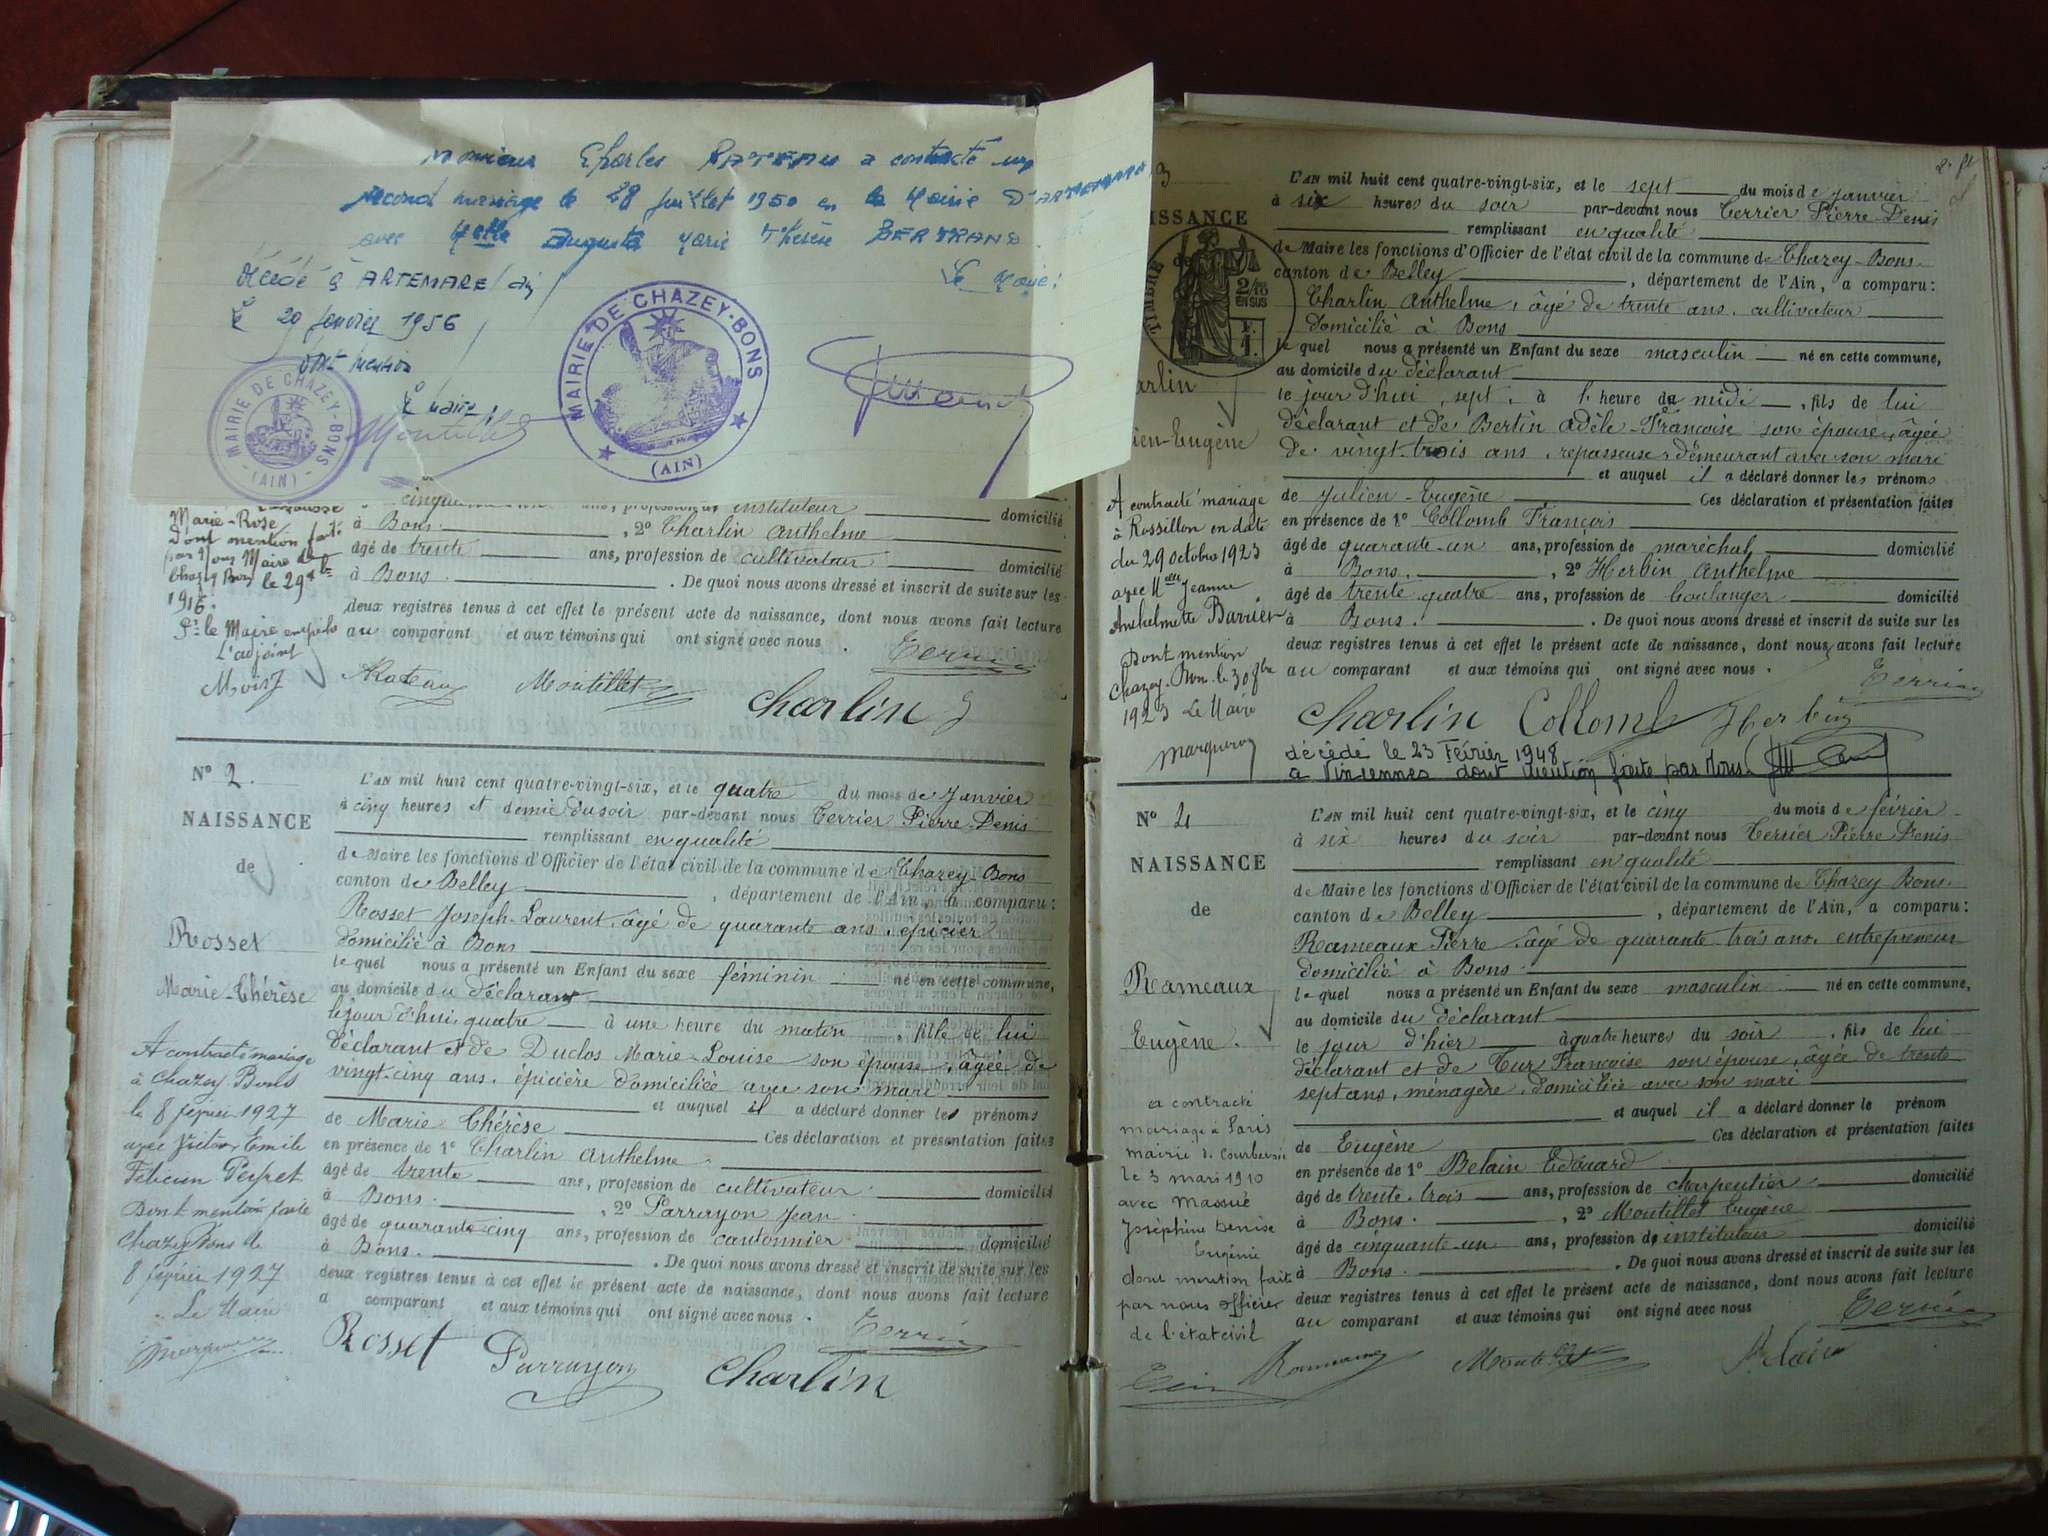 Monsieur Charles RATEAU a contracté un
second mariage le 28 juillet 1950 en la Mairie D'ARTEMARE
avec Melle Augusta Marie Thérèse BERTRAND
Le Maire:
Décédé à ARTEMARE (ain)
le 20 janvier 1956
dont mention
le maire,
MAIRIE DE CHAZEY-BONS
(AIN)
MAIRIE DE CHAZEY-BONS
(AIN)
Marie-Rose
Dont mention faite
par Nous Maire de
Chazey Bons le 29
1916.
Pr le Maire empêché
L'adjoint
cinqu instituteur domicilié
à Bons. , 2° Charlin Anthelme
âgé de trente ans, profession de cultivateur domicilié
à Bons . De quoi nous avons dressé et inscrit de suite sur les
deux registres tenus à cet effet le présent acte de naissance, dont nous avons fait lecture
au comparant et aux témoins qui ont signé avec nous .
Rateau Montillet Charlin Terrier
N° 2.
NAISSANCE
de
Rosset
Marie-Thérèse
A contracté mariage
à Chazey Bons
le 8 février 1927
avec Victor Emile
Félicien Peysset
Dont mention faite
Chazey Bons le
8 février 1927
Le Maire
L'AN mil huit cent quatre-vingt-six, et le quatre du mois de Janvier
à cinq heures et demie du soir par-devant nous Terrier Pierre Denis
remplissant en qualité
de Maire les fonctions d'Officier de l'état civil de la commune de Chazey-Bons
canton de Belley , département de l'Ain, a comparu:
Rosset Joseph-Laurent, âgé de quarante ans, épicier
domicilié à Bons
lequel nous a présenté un Enfant du sexe féminin né en cette commune,
au domicile du déclarant
le jour d'hui, quatre à une heure du matin , fille de lui
déclarant et de Duclos Marie-Louise son épouse, âgée de
vingt-cinq ans, épicière domiciliée avec son mari
et auquel il a déclaré donner les prénoms
de Marie Thérèse Ces déclaration et présentation faites
en présence de 1° Charlin Anthelme
âgé de trente ans, profession de cultivateur domicilié
à Bons. , 2° Parrayon Jean
âgé de quarante-cinq ans, profession de cantonnier domicilié
à Bons. . De quoi nous avons dressé et inscrit de suite sur les
deux registres tenus à cet effet le présent acte de naissance, dont nous avons fait lecture
a comparant et aux témoins qui ont signé avec nous .
Rosset Parrayon Charlin Terrier
2. f
3
ISSANCE
de
TIMBRE
2/10
EN SUS
1 F.
arlin
ien-Eugène
A contracté mariage
à Rossillon en date
du 29 octobre 1923
avec Melle Jeanne
Anthelmette Barrier
Dont mention
Chazey-Bons le 30 8bre
1923 Le Maire
L'AN mil huit cent quatre-vingt-six, et le sept du mois de janvier
à six heures du soir par-devant nous Terrier Pierre Denis
remplissant en qualité
de Maire les fonctions d'Officier de l'état civil de la commune de Chazey-Bons.
canton de Belley , département de l'Ain, a comparu:
Charlin Anthelme, âgé de trente ans, cultivateur
domicilié à Bons
lequel nous a présenté un Enfant du sexe masculin né en cette commune,
au domicile du déclarant
le jour d'hui, sept, à l'heure de midi , fils de lui
déclarant et de Bertin Adèle-Françoise son épouse, âgée
de vingt-trois ans, repasseuse, demeurant avec son mari
et auquel il a déclaré donner les prénoms
de Julien-Eugène Ces déclaration et présentation faites
en présence de 1° Collomb François
âgé de quarante-un ans, profession de maréchal domicilié
à Bons. , 2° Herbin Anthelme
âgé de trente-quatre ans, profession de boulanger domicilié
à Bons. . De quoi nous avons dressé et inscrit de suite sur les
deux registres tenus à cet effet le présent acte de naissance, dont nous avons fait lecture
au comparant et aux témoins qui ont signé avec nous .
Charlin Collomb Herbin Terrier
décédé le 23 Février 1948
à Vincennes dont mention faite par Nous
N° 4
NAISSANCE
de
Rameaux
Eugène.
a contracté
mariage à Paris
mairie de Courbevoie
le 3 mars 1910
avec Massué
Joséphine Denise
Eugénie
dont mention fait
par nous officier
de l'état civil
L'AN mil huit cent quatre-vingt-six, et le cinq du mois de février
à six heures du soir par-devant nous Terrier Pierre Denis
remplissant en qualité
de Maire les fonctions d'Officier de l'état civil de la commune de Chazey Bons.
canton de Belley , département de l'Ain, a comparu:
Rameaux Pierre, âgé de quarante-trois ans, entrepreneur
domicilié à Bons
lequel nous a présenté un Enfant du sexe masculin né en cette commune,
au domicile du déclarant
le jour d'hier à quatre heures du soir , fils de lui
déclarant et de Tur Françoise son épouse, âgée de trente
sept ans, ménagère, domiciliée avec son mari
et auquel il a déclaré donner le prénom
de Eugène Ces déclaration et présentation faites
en présence de 1° Belain Edouard
âgé de trente-trois ans, profession de charpentier domicilié
à Bons. , 2° Montillet Eugène
âgé de cinquante-un ans, profession de instituteur domicilié
à Bons. . De quoi nous avons dressé et inscrit de suite sur les
deux registres tenus à cet effet le présent acte de naissance, dont nous avons fait lecture
au comparant et aux témoins qui ont signé avec nous
Rameaux Montillet Belain Terrier